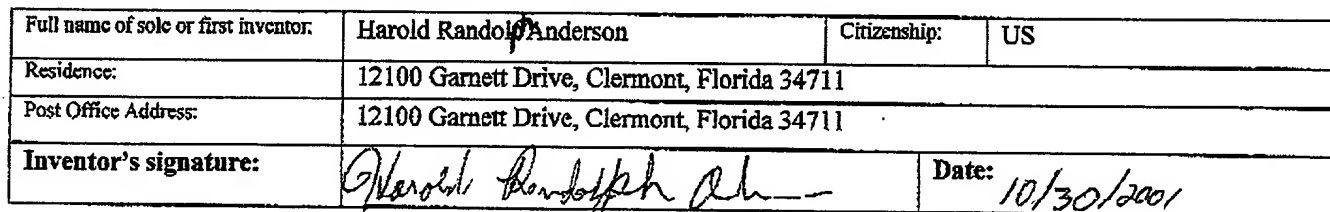 Full name of sole or first inventor: Harold Randolp Anderson Citizenship: US
Residence: 12100 Garnett Drive, Clermont, Florida 34711
Post Office Address: 12100 Garnett Drive, Clermont, Florida 34711
Inventor's signature: Harold Randolph Date: 10/30/2001